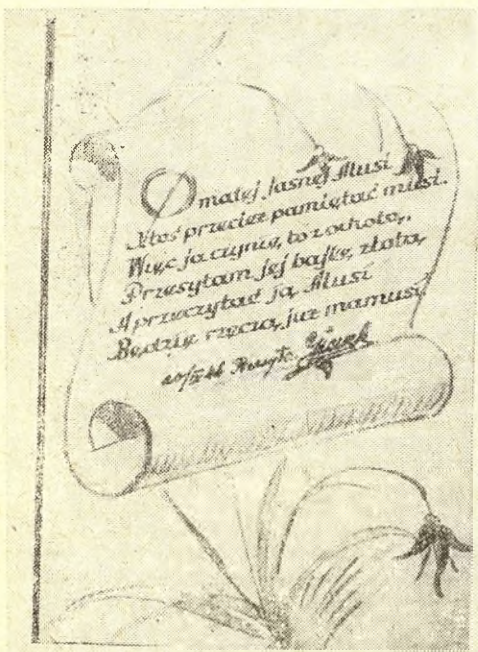 O małej jasnej Musi
Ktoś przecież pamiętać musi.
Więc ja czynię, to z ochotą,
Przesyłam jej bajkę, złotą,
A przeczytać ją, Musi
Będzie rzeczą, już mamusi,